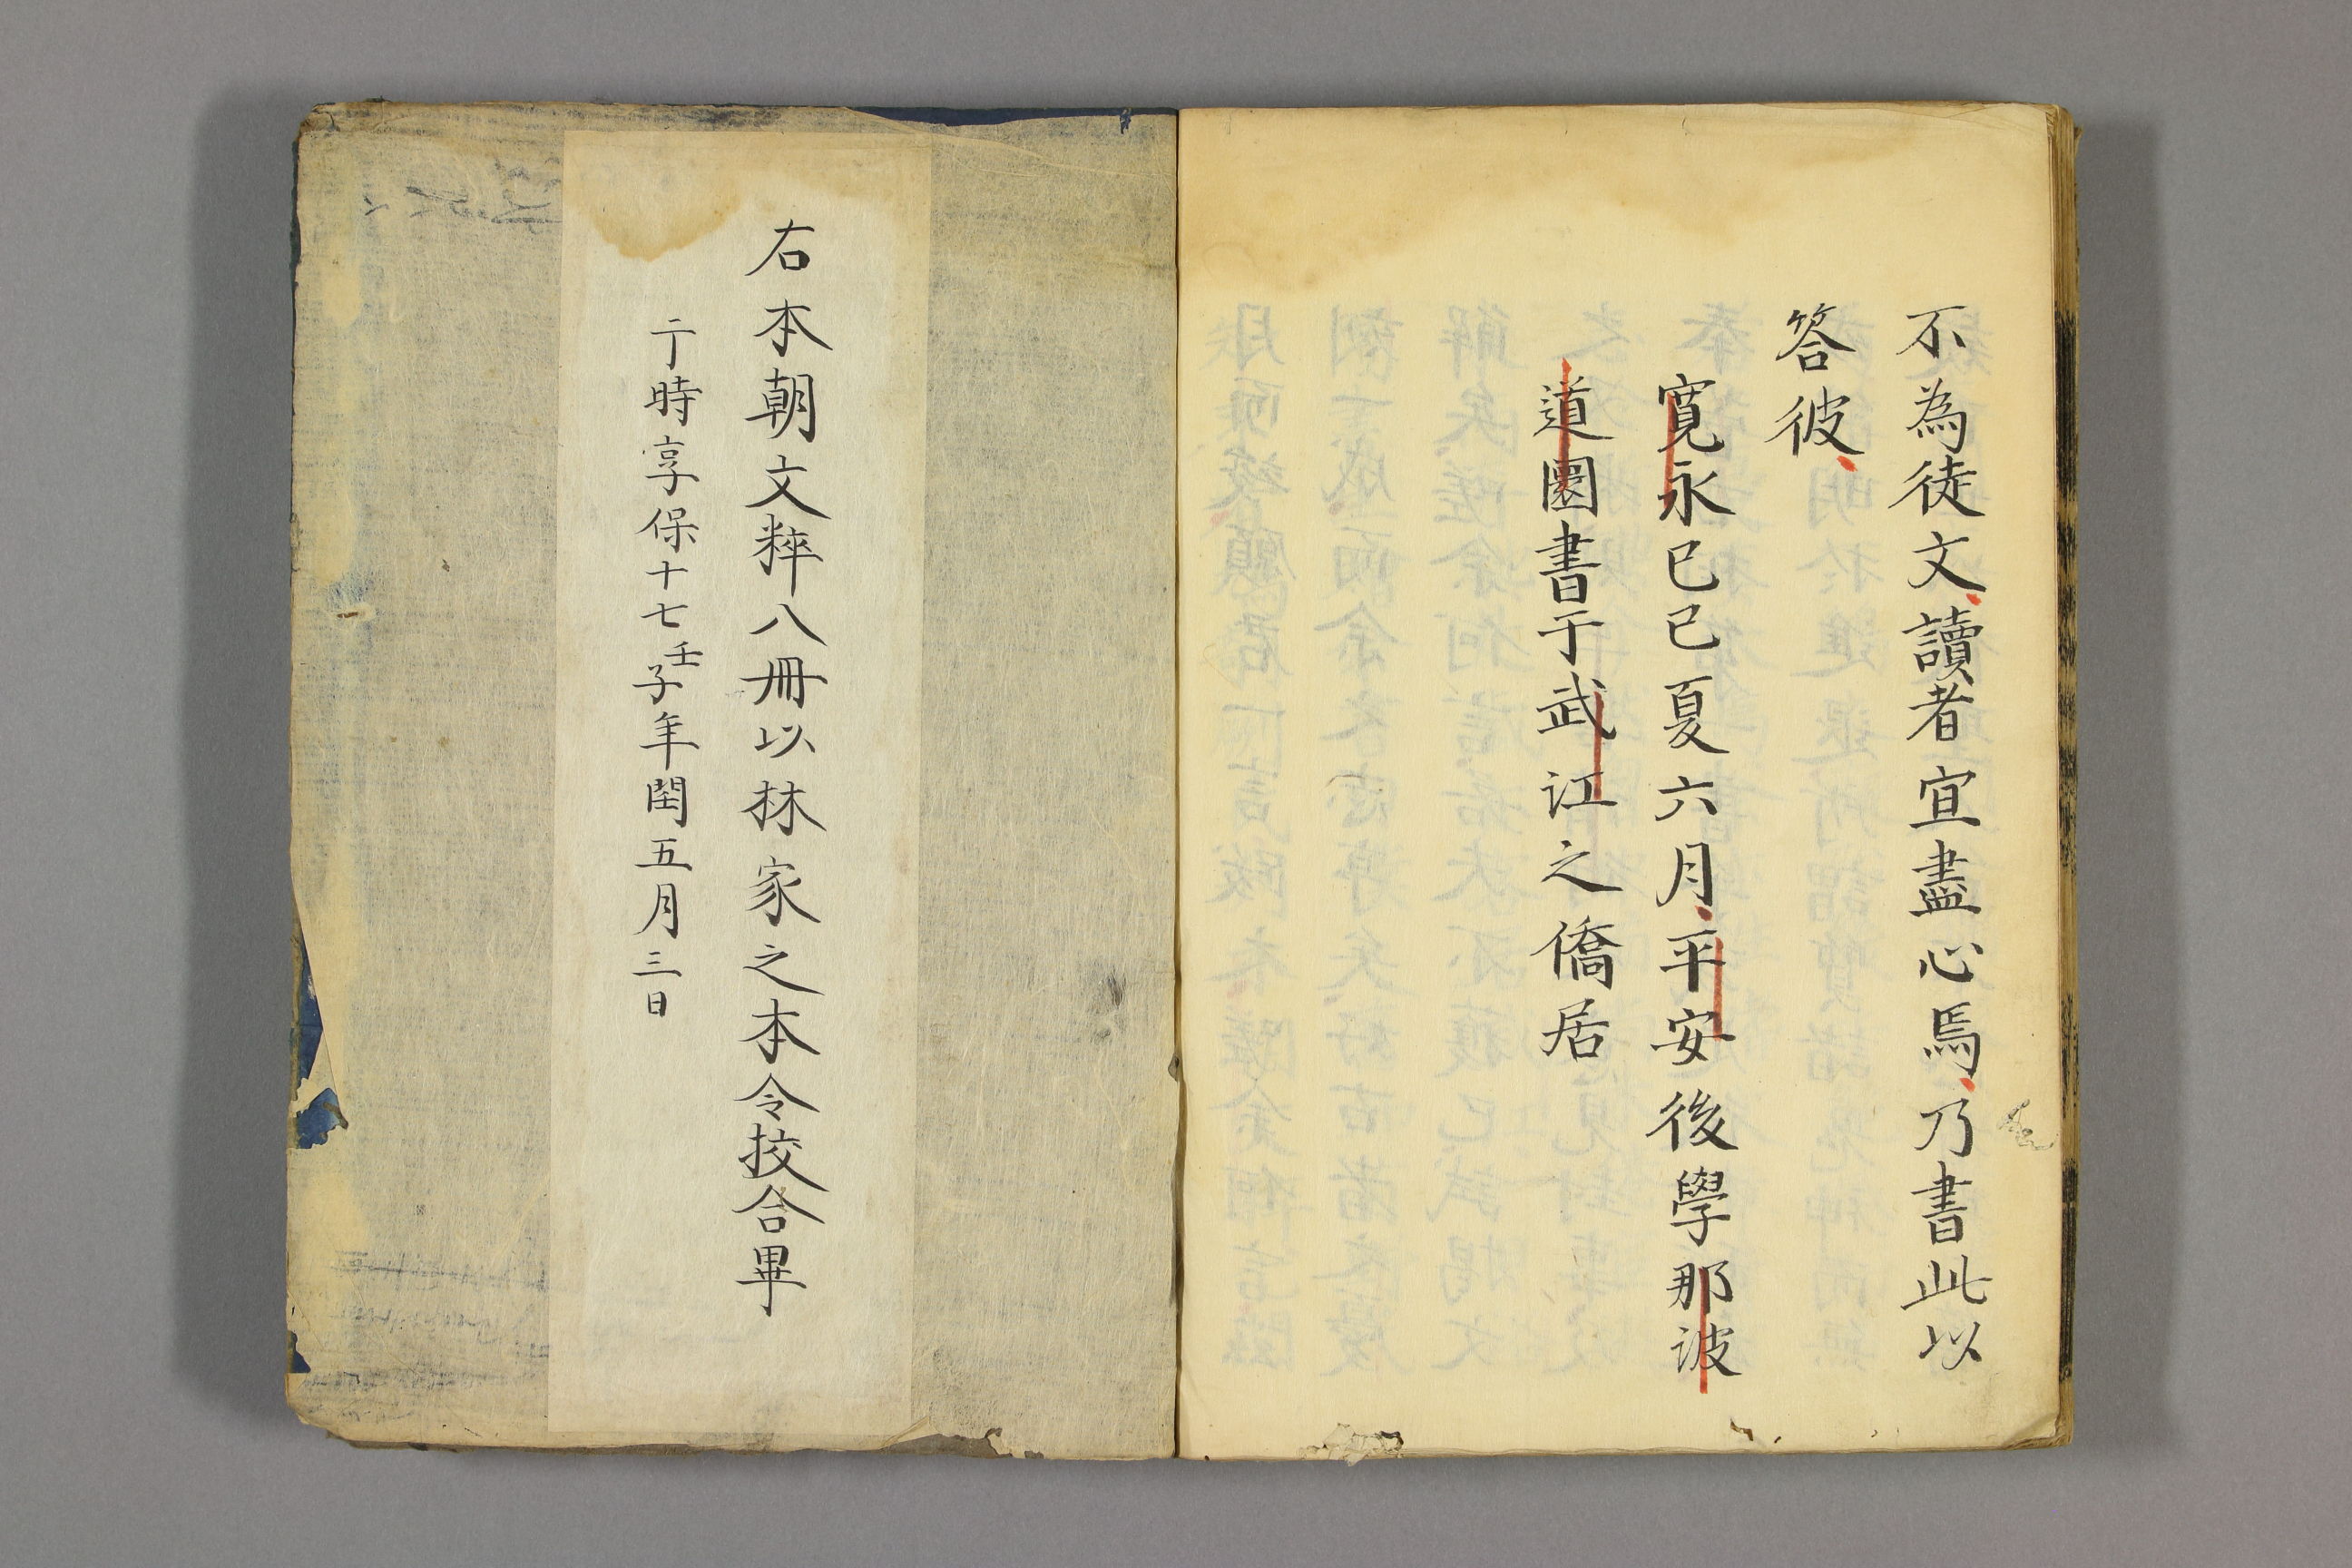 不為徒文讀者宜盡心焉乃書此以
答彼
寛永己巳夏六月平安後學那波
道圓書于武江之僑居
右本朝文粹八冊以林家之本令挍合畢
于時享保十七壬子年閏五月三日